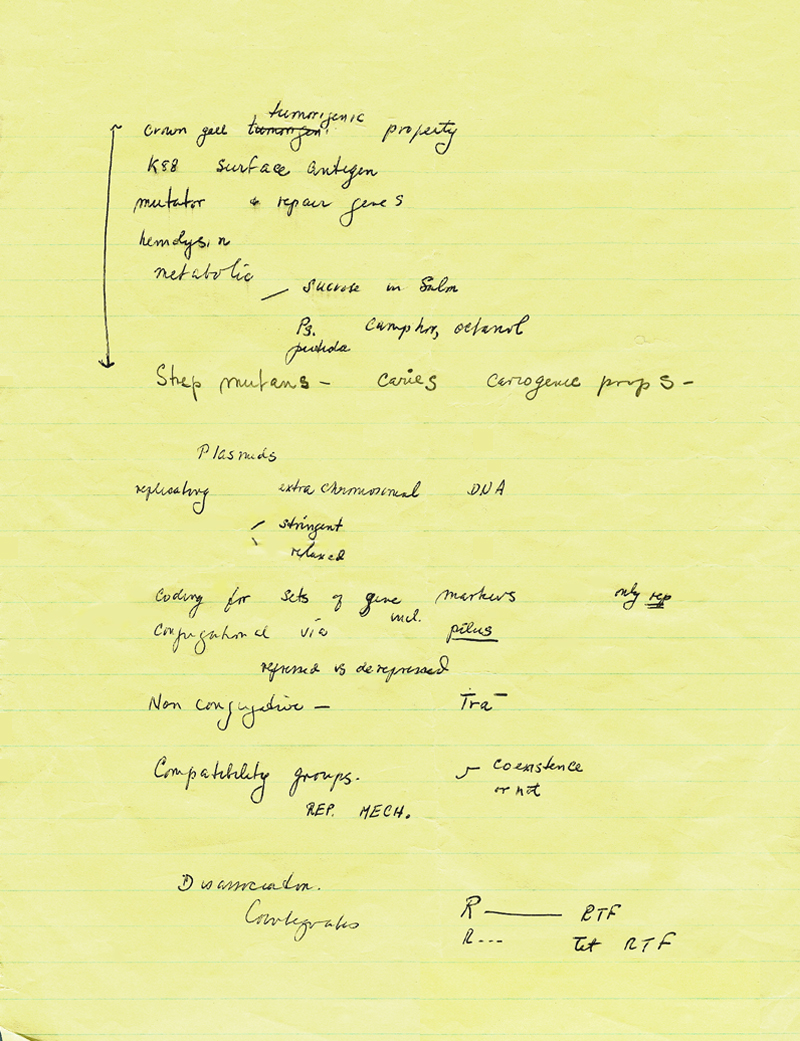 tumorigenic
crown gall tumorigen. property
K88 surface antigen
mutator + repair genes
hemolysin
metabolic
sucrose in Salm
Ps. camphor, octanol
putida
Strep mutans - caries cariogenic props -
Plasmids
replicating extrachromosomal DNA
stringent
relaxed
Coding for sets of gene markers only rep
incl.
Conjugational via pilus
repressed vs derepressed
Non conjugative - Tra-
Compatibility groups. coexistence
or not
REP. MECH.
Disassociation.
Cointegrates
R ——— RTF
R --- Tet RTF